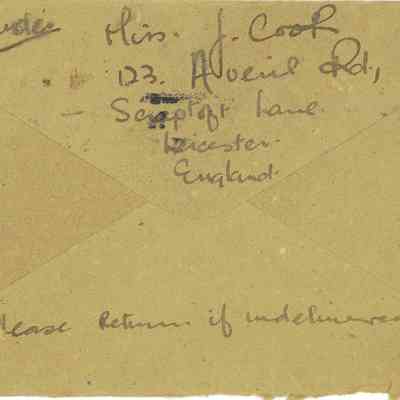 Miss. J. Cook
123. Averil Rd.,
Scraptoft Lane
Leicester.
England.
Please Return if undelivered